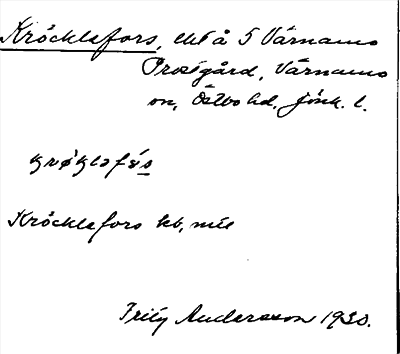 Kröcklefors, ext å 5 Värnamo
Prostgård, Värnamo
sn, Östbo hd, Jönk. l.
Kröcklefors kb, mtl
Andersson 1930.